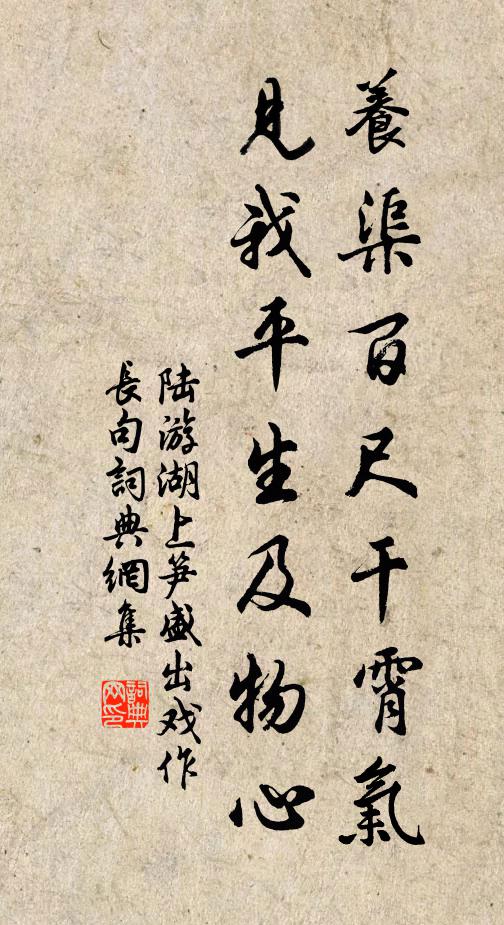 養渠百尺干霄氣
見我平生及物心
陆游湖上笋盛出戏作
長句詞典網集
詞典網印